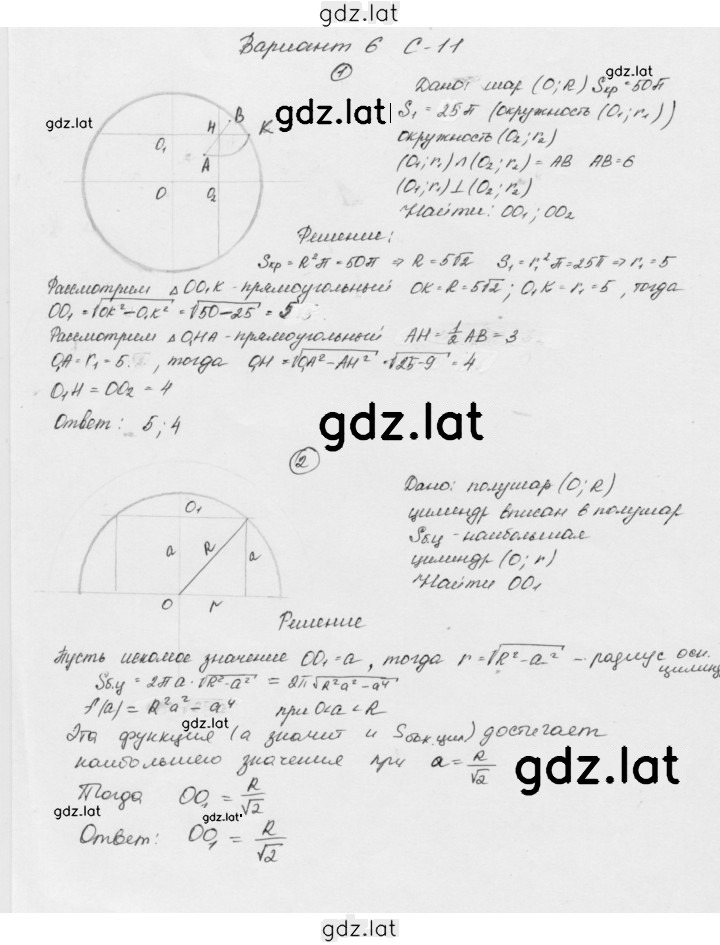 gdz.lat
Вариант 6 С-11
①
gdz.lat
gdz.lat
О₁ Н В К
А
О О₂
Дано: шар (О; R) Sкр = 50π
S₁ = 25π (окружность (О₁; r₁))
окружность (О₂; r₂)
(О₁; r₁) ∩ (О₂; r₂) = АВ АВ = 6
(О₁; r₁) ⊥ (О₂; r₂)
Найти: ОО₁; ОО₂
Решение:
Sкр = R²π = 50π ⇒ R = 5√2 S₁ = r₁²π = 25π ⇒ r₁ = 5
Рассмотрим △ ОО₁К - прямоугольный ОК = R = 5√2; О₁К = r₁ = 5, тогда
ОО₁ = √ОК² − О₁К² = √50−25 = 5
Рассмотрим △ О₁НА - прямоугольный АН = 1/2 АВ = 3
О₁А = r₁ = 5. , тогда О₁Н = √О₁А² − АН² = √25-9 = 4
О₁Н = ОО₂ = 4
Ответ: 5; 4
gdz.lat
②
О₁
а R а
О r
Дано: полушар (О; R)
цилиндр вписан в полушар
Sбц - наибольшая
цилиндр (О; r)
Найти ОО₁
Решение
Пусть искомое значение ОО₁ = а, тогда r = √R² − а² – радиус осн. цилинд
Sбц = 2πа · √R² − а² = 2π√R²а² − а⁴
f(а) = R²а² − а⁴ при 0<а<R
gdz.lat
Эта функция (а значит и Sбок.цил) достигает
наибольшего значения при а = R/√2
gdz.lat
Тогда ОО₁ = R/√2
gdz.lat
Ответ: ОО₁ = R/√2
gdz.lat
gdz.lat